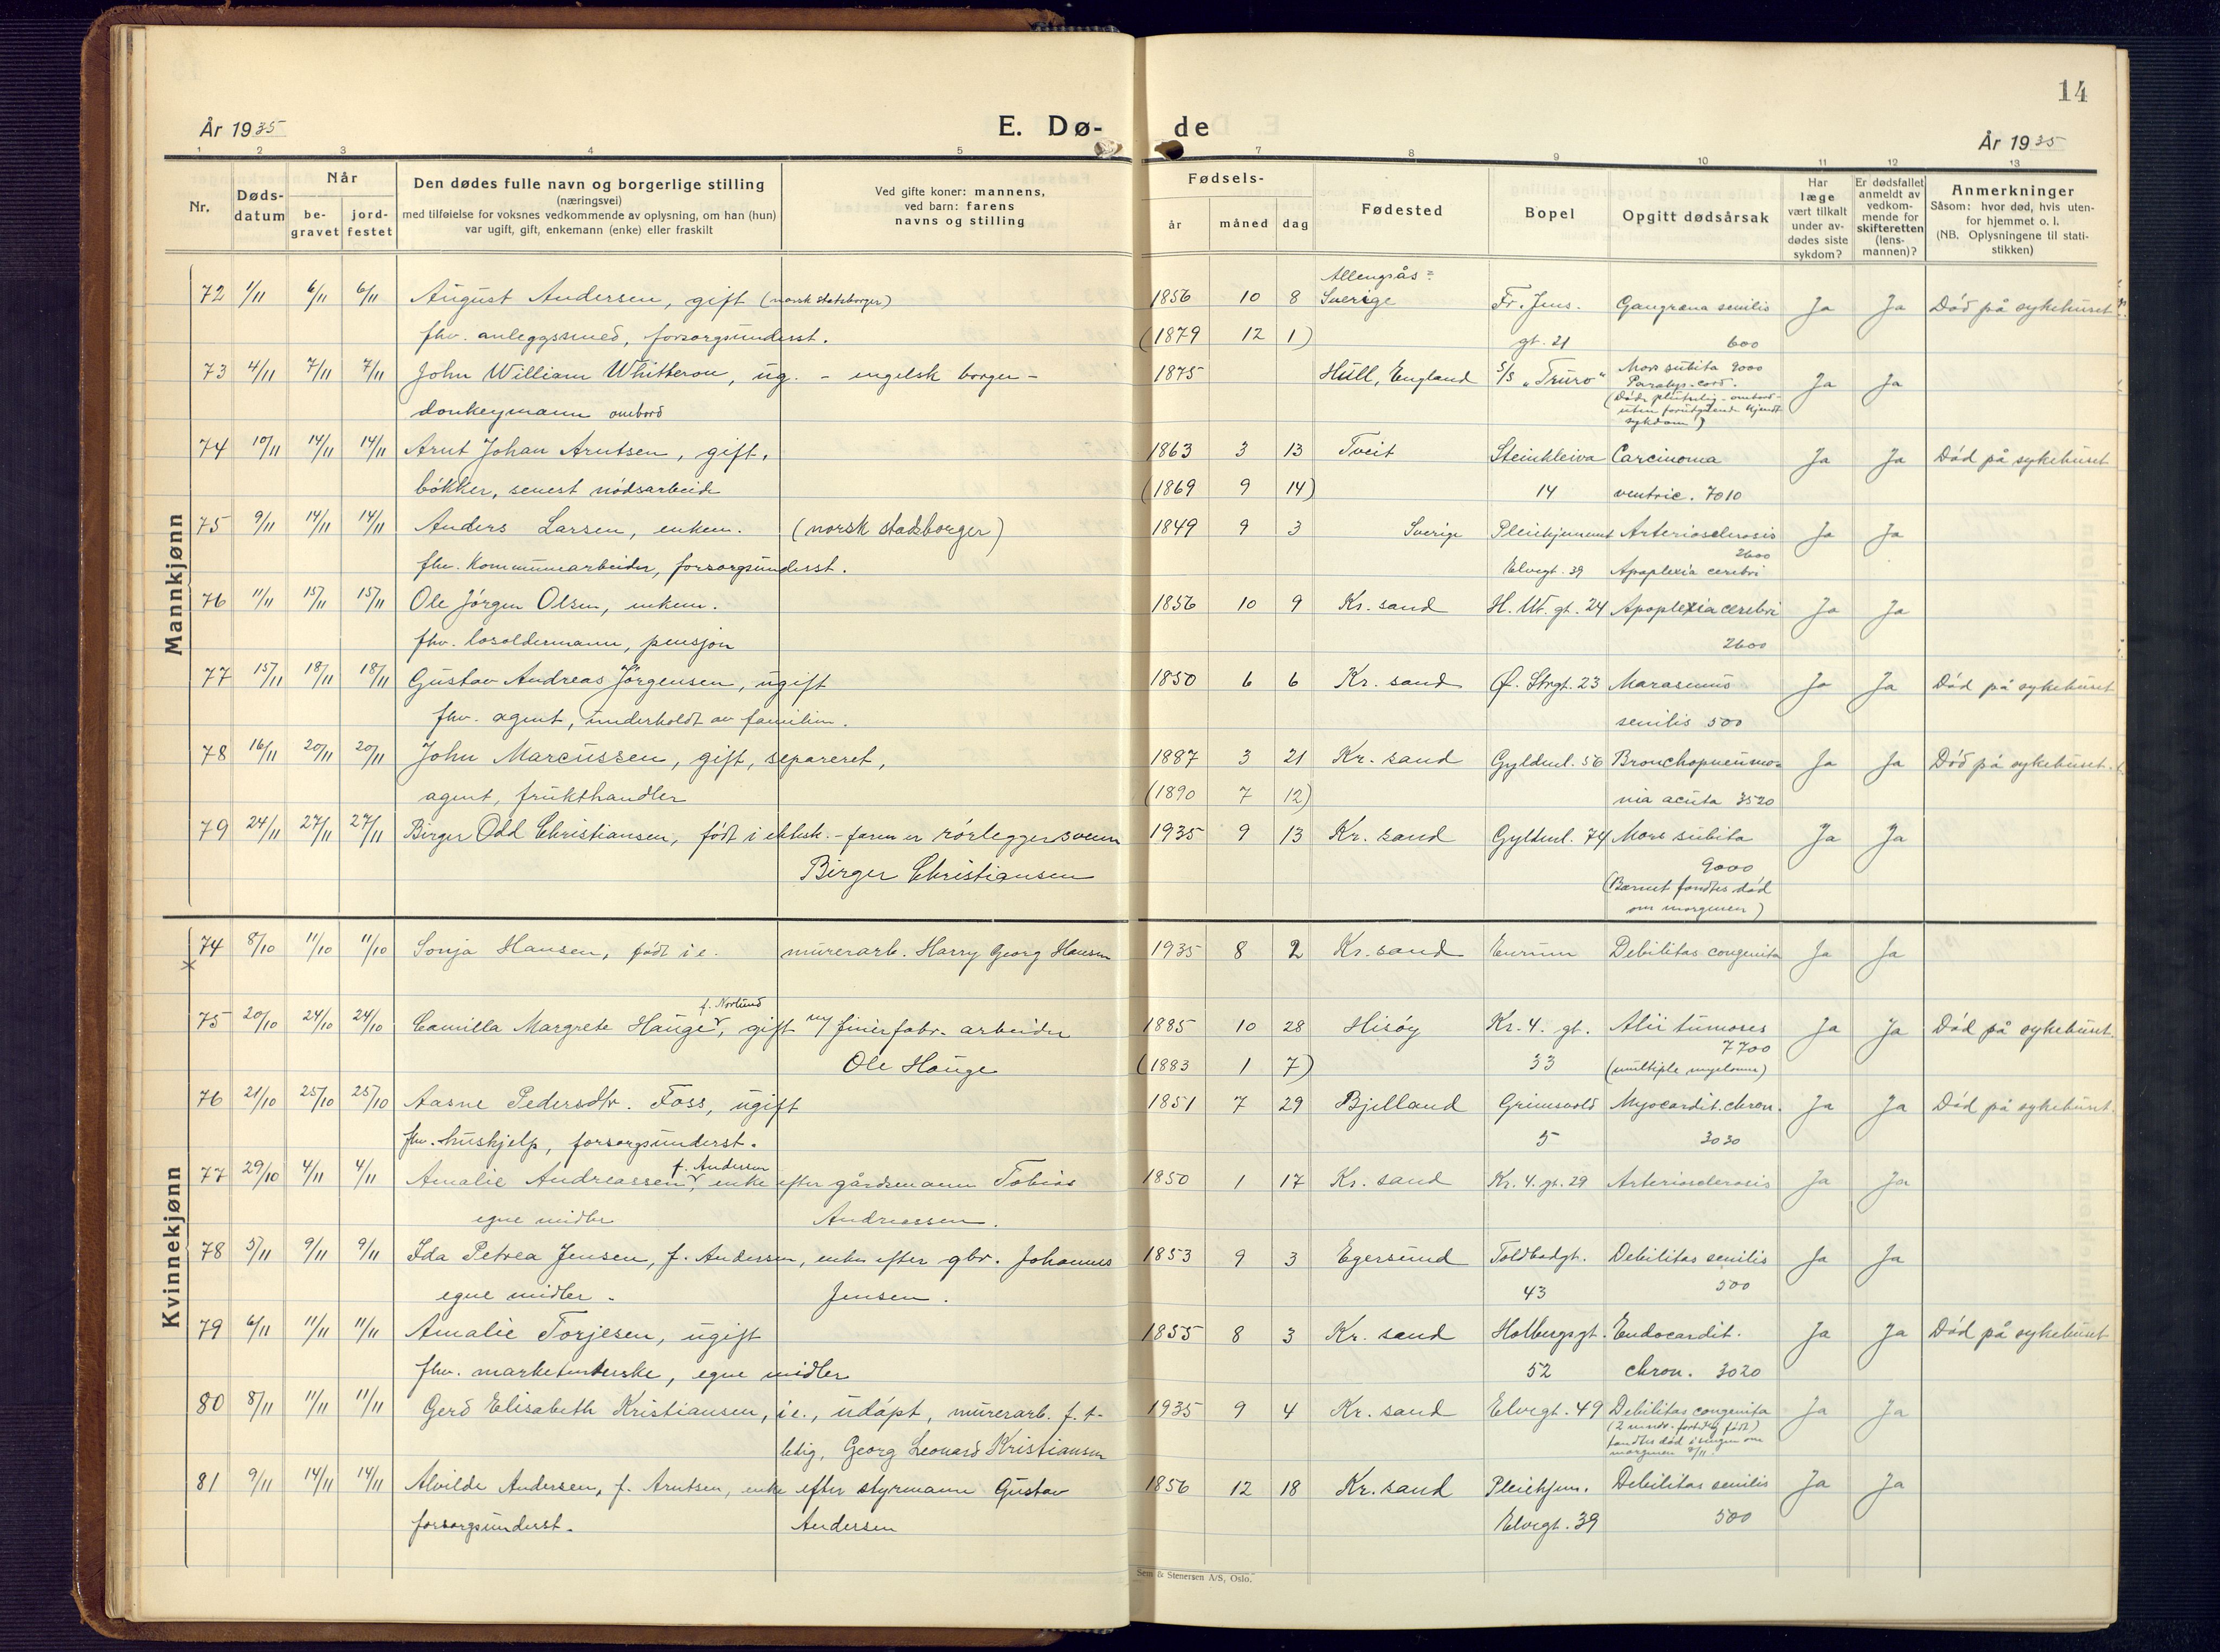 14
År 1935
E. Dø- de
År 1935
1 2 3 4 5 7 8 9 10 11 12 13
Nr.
Døds-
datum
Når
be-
gravet
jord-
festet
Den dødes fulle navn og borgerlige stilling
(næringsvei)
med tilføielse for voksnes vedkommende av oplysning, om han (hun)
var ugift, gift, enkemann (enke) eller fraskilt
Ved gifte koner: mannens,
ved barn: farens
navns og stilling
Fødsels-
år måned dag
Fødested
Bopel
Opgitt dødsårsak
Har
læge
vært tilkalt
under av-
dødes siste
sykdom?
Er dødsfallet
anmeldt av
vedkom-
mende for
skifteretten
(lens-
mannen)?
Anmerkninger
Såsom: hvor død, hvis uten-
for hjemmet o. l.
(NB. Oplysningene til stati-
stikken)
Mannkjønn
Allengsås=
72 1/11 6/11 6/11 August Andersen, gift (norsk statsborger) 1856 10 8 Sverige Fr. Jens. Gangræna senilis Ja Ja Død på sykehuset
fhv. anleggssmed, forsorgsunderst. (1879 12 1) gt. 21 600
73 4/11 7/11 7/11 John William Whitteron, ug. - engelsk borger - 1875 Hull, England S/S "Truro" Mors subita 9000 Ja Ja
Paralys. cord.
donkeymann ombord (Døde plutselig - ombord -
uten forutgående kjendt
sykdom!)
74 10/11 14/11 14/11 Arnt Johan Arntsen, gift, 1863 3 13 Tveit Steinkleiva Carcinoma Ja Ja Død på sykehuset
bøkker, senest nødsarbeide (1869 9 14) 14 ventric. 7010
75 9/11 14/11 14/11 Anders Larsen, enkem. (norsk statsborger) 1849 9 3 Sverige Pleiehjemmet Arteriosclerosis Ja Ja
2600
fhv. kommunearbeider, forsorgsunderst. Elvegt. 39 Apoplexia cerebri
76 11/11 15/11 15/11 Ole Jörgen Olsen, enkem. 1856 10 9 Kr. sand H. W. gt. 24 Apoplexia cerebri Ja Ja
fhv. losoldermann, pensjon 2600
77 15/11 18/11 18/11 Gustav Andreas Jörgensen, ugift 1850 6 6 Kr. sand Ø. Strgt. 23 Marasmus Ja Ja Død på sykehuset
fhv. agent, underholdt av familien. senilis 500
78 16/11 20/11 20/11 John Marcussen, gift, separeret, 1887 3 21 Kr. sand Gyldenl. 56 Bronchopneumo= Ja Ja Død på sykehuset.
agent, frukthandler (1890 7 12) nia acuta 3520
79 24/11 27/11 27/11 Birger Odd Christiansen, født i ektesk. - faren er rörleggersvenn 1935 9 13 Kr. sand Gyldenl. 74 Mors subita Ja Ja
Birger Christiansen 9000
(Barnet fandtes død
om morgenen)
Kvinnekjønn
74 8/10 11/10 11/10 Sonja Hansen, født i e. murerarb. Harry Georg Hansen 1935 8 2 Kr. sand Eurum Debilitas congenita Ja Ja
×
f. Norlund
75 20/10 24/10 24/10 Camilla Margrete Hauge, gift m/ finérfabr. arbeider 1885 10 28 Hisøy Kr. 4. gt. Alii tumores Ja Ja Død på sykehuset.
7700
Ole Hauge (1883 1 7) 33 (multiple myelomer)
76 21/10 25/10 25/10 Aasne Pedersdtr. Foss, ugift 1851 7 29 Bjelland Grimsvold Myocardit. chron. Ja Ja Død på sykehuset.
fhv. hushjelp, forsorgsunderst. 5 3030
f. Andersen
77 29/10 4/11 4/11 Amalie Andreassen, enke efter gårdsmann Tobias 1850 1 17 Kr. sand Kr. 4. gt. 29 Arteriosclerosis Ja Ja
egne midler Andreassen.
78 5/11 9/11 9/11 Ida Petrea Jensen, f. Andersen, enke efter gbr. Johannes 1853 9 3 Egersund Toldbodgt. Debilitas senilis Ja Ja
egne midler. Jensen. 43 500
79 6/11 11/11 11/11 Amalie Torjesen, ugift 1855 8 3 Kr. sand Holbergsgt. Endocardit. Ja Ja Død på sykehuset
fhv. marketenterske, egne midler 52 chron. 3020
80 8/11 11/11 11/11 Gerd Elisabeth Kristiansen, i e., udøpt, murerarb. f. t. 1935 9 4 Kr. sand Elvegt. 49 Debilitas congenita Ja Ja
(2 mndr. fortidlig født)
ledig, Georg Leonard Kristiansen fandtes død i sengen om
morgenen 8/11.
81 9/11 14/11 14/11 Alvilde Andersen, f. Arntsen, enke efter styrmann Gustav 1856 12 18 Kr. sand Pleiehjem. Debilitas senilis Ja Ja
forsorgsunderst. Andersen Elvegt. 39 500
Sem & Stenersen A/S, Oslo.